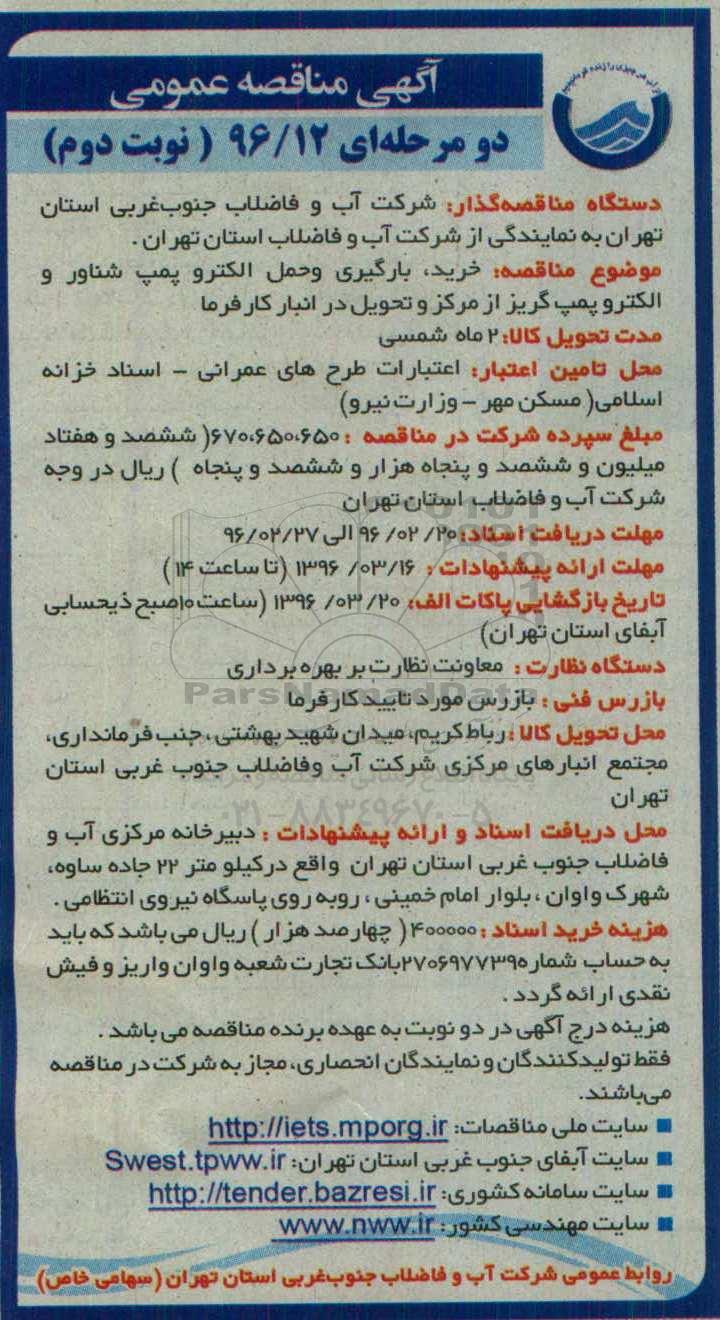 آگهی مناقصه عمومی
دو مرحله‌ای ۹۶/۱۲ ( نوبت دوم)
دستگاه مناقصه‌گذار: شرکت آب و فاضلاب جنوب‌غربی استان
تهران به نمایندگی از شرکت آب و فاضلاب استان تهران .
موضوع مناقصه: خرید، بارگیری وحمل الکترو پمپ شناور و
الکترو پمپ گریز از مرکز و تحویل در انبار کارفرما
مدت تحویل کالا: ۲ ماه شمسی
محل تامین اعتبار: اعتبارات طرح های عمرانی - اسناد خزانه
اسلامی( مسکن مهر - وزارت نیرو)
مبلغ سپرده شرکت در مناقصه : ۶۷۰،۶۵۰،۶۵۰( ششصد و هفتاد
میلیون و ششصد و پنجاه هزار و ششصد و پنجاه ) ریال در وجه
شرکت آب و فاضلاب استان تهران
مهلت دریافت اسناد: ۲۰/ ۰۲/ ۹۶ الی ۹۶/۰۲/۲۷
مهلت ارائه پیشنهادات : ۰۳/۱۶/ ۱۳۹۶ (تا ساعت ۱۴ )
تاریخ بازگشایی پاکات الف: ۲۰/ ۰۳/ ۱۳۹۶ (ساعت۱۰صبح ذیحسابی
آبفای استان تهران)
دستگاه نظارت : معاونت نظارت بر بهره برداری
بازرس فنی : بازرس مورد تایید کارفرما
ParsNamadData
محل تحویل کالا : رباط کریم، میدان شهید بهشتی ، جنب فرمانداری،
مجتمع انبارهای مرکزی شرکت آب وفاضلاب جنوب غربی استان
تهران
۰۲۱-۸۸۳۴۹۶۷۰-۵
محل دریافت اسناد و ارائه پیشنهادات : دبیرخانه مرکزی آب و
فاضلاب جنوب غربی استان تهران واقع درکیلو متر ۲۲ جاده ساوه،
شهرک واوان ، بلوار امام خمینی ، روبه روی پاسگاه نیروی انتظامی .
هزینه خرید اسناد : ۴۰۰۰۰۰( چهارصد هزار ) ریال می باشد که باید
به حساب شماره۲۷۰۶۹۷۷۳۹بانک تجارت شعبه واوان واریز و فیش
نقدی ارائه گردد .
هزینه درج آگهی در دو نوبت به عهده برنده مناقصه می باشد .
فقط تولیدکنندگان و نمایندگان انحصاری، مجاز به شرکت در مناقصه
می‌باشند.
سایت ملی مناقصات: http://iets.mporg.ir
سایت آبفای جنوب غربی استان تهران: Swest.tpww.ir
سایت سامانه کشوری: http://tender.bazresi.ir
سایت مهندسی کشور: www.nww.ir
روابط عمومی شرکت آب و فاضلاب جنوب‌غربی استان تهران (سهامی خاص)